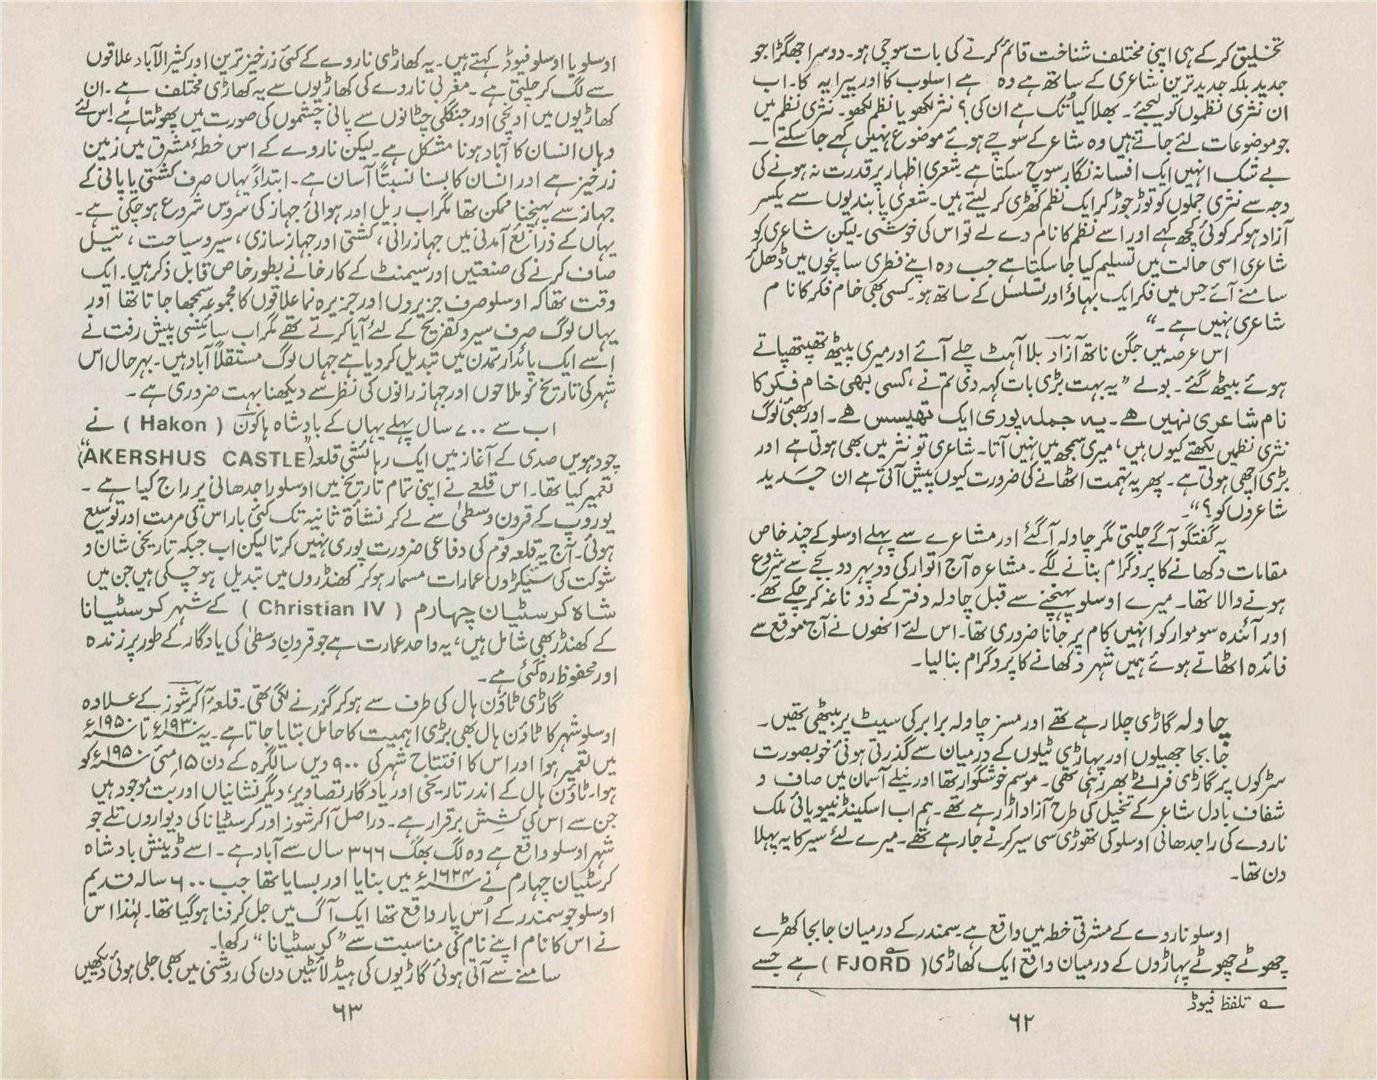 تخلیق کر کے ہی اپنی مختلف شناخت قائم کرنے کی بات سوچی ہو۔ دوسرا جھگڑا جو
جدید بلکہ جدید ترین شاعری کے ساتھ ہے وہ ہے اسلوب کا اور پیرایہ کا۔ اب
ان نثری نظموں کو لیجئے۔ بھلا کیا تُک ہے ان کی؟ نثر لکھو یا نظم لکھو۔ نثری نظم میں
جو موضوعات لئے جاتے ہیں وہ شاعر کے سوچے ہوئے موضوع نہیں کہے جا سکتے ــــ
بے شک انہیں ایک افسانہ نگار سوچ سکتا ہے شعری اظہار پر قدرت نہ ہونے کی
وجہ سے نثری جملوں کو توڑ جوڑ کر ایک نظم کھڑی کر لیتے ہیں۔ شعری پابندیوں سے یکسر
آزاد ہو کر کوئی کچھ کہے اور اسے نظم کا نام دے لے تو اس کی خوشی۔ لیکن شاعری کو
شاعری اسی حالت میں تسلیم کیا جا سکتا ہے جب وہ اپنے فطری سانچوں میں ڈھل کر
سامنے آئے جس میں فکر ایک بہاؤ اور تسلسل کے ساتھ ہو۔ کسی بھی خام فکر کا نام
شاعری نہیں ہے۔“
اس عرصہ میں جگن ناتھ آزاد بلا آہٹ چلے آئے اور میری پیٹھ تھپتھپاتے
ہوئے بیٹھ گئے۔ بولے ”یہ بہت بڑی بات کہہ دی تم نے، کسی بھی خام فکر کا
نام شاعری نہیں ہے۔ یہ جملہ پوری ایک تھیسس ہے۔ اور بھئی لوگ
نثری نظمیں لکھتے کیوں ہیں، میری سمجھ میں نہیں آتا۔ شاعری تو نثر میں بھی ہوتی ہے اور
بڑی اچھی ہوتی ہے۔ پھر یہ تہمت اٹھانے کی ضرورت کیوں پیش آتی ہے ان جدید
شاعروں کو؟“۔
یہ گفتگو آگے چلتی مگر چاولہ آ گئے اور مشاعرے سے پہلے اوسلو کے چند خاص
مقامات دکھانے کا پروگرام بنانے لگے۔ مشاعرہ آج اتوار کی دوپہر دو بجے سے شروع
ہونے والا تھا۔ میرے اوسلو پہنچنے سے قبل چاولہ دفتر کے دو ناغہ کر چکے تھے۔
اور آئندہ سوموار کو انہیں کام پر جانا ضروری تھا۔ اس لئے انھوں نے آج موقع سے
فائدہ اٹھاتے ہوئے ہمیں شہر دکھانے کا پروگرام بنا لیا۔
چاولہ گاڑی چلا رہے تھے اور مسز چاولہ برابر کی سیٹ پر بیٹھی تھیں۔
جا بجا جھیلوں اور پہاڑی ٹیلوں کے درمیان سے گذرتی ہوئی خوبصورت
سڑکوں پر گاڑی فراٹے بھر رہی تھی۔ موسم خوشگوار تھا اور نیلے آسمان میں صاف و
شفاف بادل شاعر کے تخیل کی طرح آزاد اڑ رہے تھے۔ ہم اب اسکینڈنیویائی ملک
ناروے کی راجدھانی اوسلو کی تھوڑی سی سیر کرنے جا رہے تھے۔ میرے لئے سیر کا یہ پہلا
دن تھا۔
اوسلو ناروے کے مشرقی خطہ میں واقع ہے سمندر کے درمیان جا بجا کھڑے
چھوٹے چھوٹے پہاڑوں کے درمیان واقع ایک کھاڑی (FJORD) ہے جسے
؎ تلفظ فیوڈ
۶۲
اوسلو یا اوسلو فیوڈ کہتے ہیں۔ یہ کھاڑی ناروے کے کئی زرخیز ترین اور کثیر الآباد علاقوں
سے لگ کر چلتی ہے۔ مغربی ناروے کی کھاڑیوں سے یہ کھاڑی مختلف ہے۔ ان
کھاڑیوں میں اونچی اور جنگلی چٹانوں سے پانی چشموں کی صورت میں پھوٹتا ہے اس لئے
وہاں انسان کا آباد ہونا مشکل ہے۔ لیکن ناروے کے اس خطۂ مشرق میں زمین
زرخیز ہے اور انسان کا بسنا نسبتاً آسان ہے۔ ابتداءً یہاں صرف کشتی یا پانی کے
جہاز سے پہنچنا ممکن تھا مگر اب ریل اور ہوائی جہاز کی سروس شروع ہو چکی ہے۔
یہاں کے ذرائع آمدنی میں جہاز رانی، کشتی اور جہاز سازی، سیر و سیاحت، تیل
صاف کرنے کی صنعتیں اور سیمنٹ کے کارخانے بطور خاص قابل ذکر ہیں۔ ایک
وقت تھا کہ اوسلو صرف جزیروں اور جزیرہ نما علاقوں کا مجموعہ سمجھا جاتا تھا اور
یہاں لوگ صرف سیر و تفریح کے لئے آیا کرتے تھے مگر اب سائنسی پیش رفت نے
اسے ایک پائدار تمدن میں تبدیل کر دیا ہے جہاں لوگ مستقلاً آباد ہیں۔ بہرحال اس
شہر کی تاریخ کو ملاحوں اور جہاز رانوں کی نظر سے دیکھنا بہت ضروری ہے۔
اب سے ۷۰۰ سال پہلے یہاں کے بادشاہ ہاکون (Hakon) نے
چودھویں صدی کے آغاز میں ایک رہائشی قلعہ (”AKERSHUS CASTLE“)
تعمیر کیا تھا۔ اس قلعے نے اپنی تمام تاریخ میں اوسلو راجدھانی پر راج کیا ہے۔
یوروپ کے قرون وسطیٰ سے لے کر نشاۃ ثانیہ تک کئی بار اس کی مرمت اور توسیع
ہوئی۔ آج یہ قلعہ قوم کی دفاعی ضرورت پوری نہیں کرتا لیکن اب جبکہ تاریخی شان و
شوکت کی سینکڑوں عمارات مسمار ہو کر کھنڈروں میں تبدیل ہو چکی ہیں جن میں
شاہ کرسٹیان چہارم (Christian IV) کے شہر کرسٹیانا
کے کھنڈر بھی شامل ہیں، یہ واحد عمارت ہے جو قرونِ وسطیٰ کی یادگار کے طور پر زندہ
اور محفوظ رہ گئی ہے۔
گاڑی ٹاؤن ہال کی طرف سے ہو کر گزرنے لگی تھی۔ قلعہ آکرشوز کے علاوہ
اوسلو شہر کا ٹاؤن ہال بھی بڑی اہمیت کا حامل بتایا جاتا ہے۔ یہ ۱۹۳۰ء تا ۱۹۵۰ء
میں تعمیر ہوا اور اس کا افتتاح شہر کی ۹۰۰ ویں سالگرہ کے دن ۱۵ مئی ۱۹۵۰ء کو
ہوا۔ ٹاؤن ہال کے اندر تاریخی اور یادگار تصاویر، دیگر نشانیاں اور بت موجود ہیں
جن سے اس کی کشش برقرار ہے۔ دراصل آکرشوز اور کرسٹیانا کی دیواروں تلے جو
شہر اوسلو واقع ہے وہ لگ بھگ ۳۶۶ سال سے آباد ہے۔ اسے ڈینش بادشاہ
کرسٹیان چہارم نے ۱۶۲۴ء میں بنایا اور بسایا تھا جب ۶۰۰ سالہ قدیم
اوسلو جو سمندر کے اُس پار واقع تھا ایک آگ میں جل کر فنا ہو گیا تھا۔ لہٰذا اس
نے اس کا نام اپنے نام کی مناسبت سے ”کرسٹیانا“ رکھا۔
سامنے سے آتی ہوئی گاڑیوں کی ہیڈ لائٹیں دن کی روشنی میں بھی جلی ہوئی دیکھیں
۶۳